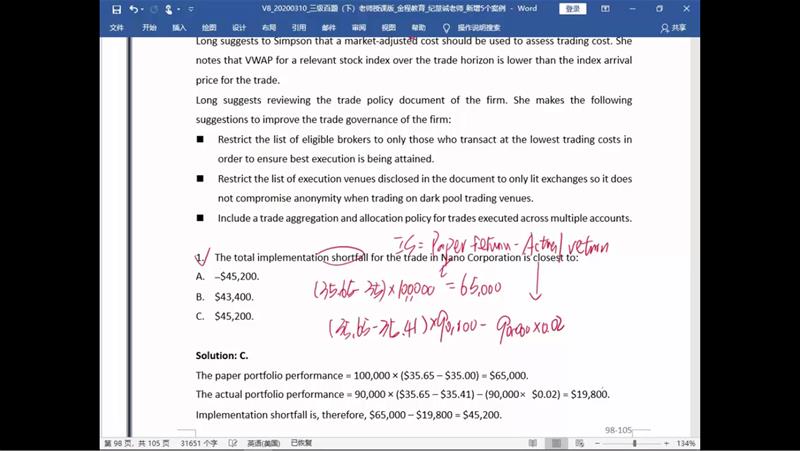 V8_20200310_三级百题 (下) 老师授课版_金程教育_纪慧诚老师_新增5个案例 - Word
登录
文件 主页 插入 设计 布局 引用 邮件 审阅 视图 帮助 操作说明搜索 共享
Long suggests to Simpson that a market-adjusted cost should be used to assess trading cost. She
notes that VWAP for a relevant stock index over the trade horizon is lower than the index arrival
price for the trade.
Long suggests reviewing the trade policy document of the firm. She makes the following
suggestions to improve the trade governance of the firm:
■ Restrict the list of eligible brokers to only those who transact at the lowest trading costs in
order to ensure best execution is being attained.
■ Restrict the list of execution venues disclosed in the document to only lit exchanges so it does
not compromise anonymity when trading on dark pool trading venues.
■ Include a trade aggregation and allocation policy for trades executed across multiple accounts.
IS = Paper return - Actual return
1. The total implementation shortfall for the trade in Nano Corporation is closest to:
A. –$45,200.
(35.65-35)×100,000 = 65,000
B. $43,400.
C. $45,200.
(35.65-35.41)×90,000 - 90,000×0.02
Solution: C.
The paper portfolio performance = 100,000 × ($35.65 – $35.00) = $65,000.
The actual portfolio performance = 90,000 × ($35.65 – $35.41) – (90,000× $0.02) = $19,800.
Implementation shortfall is, therefore, $65,000 – $19,800 = $45,200.
98-105
第 98 页，共 105 页 31651 个字 英语(美国) 已恢复 134%